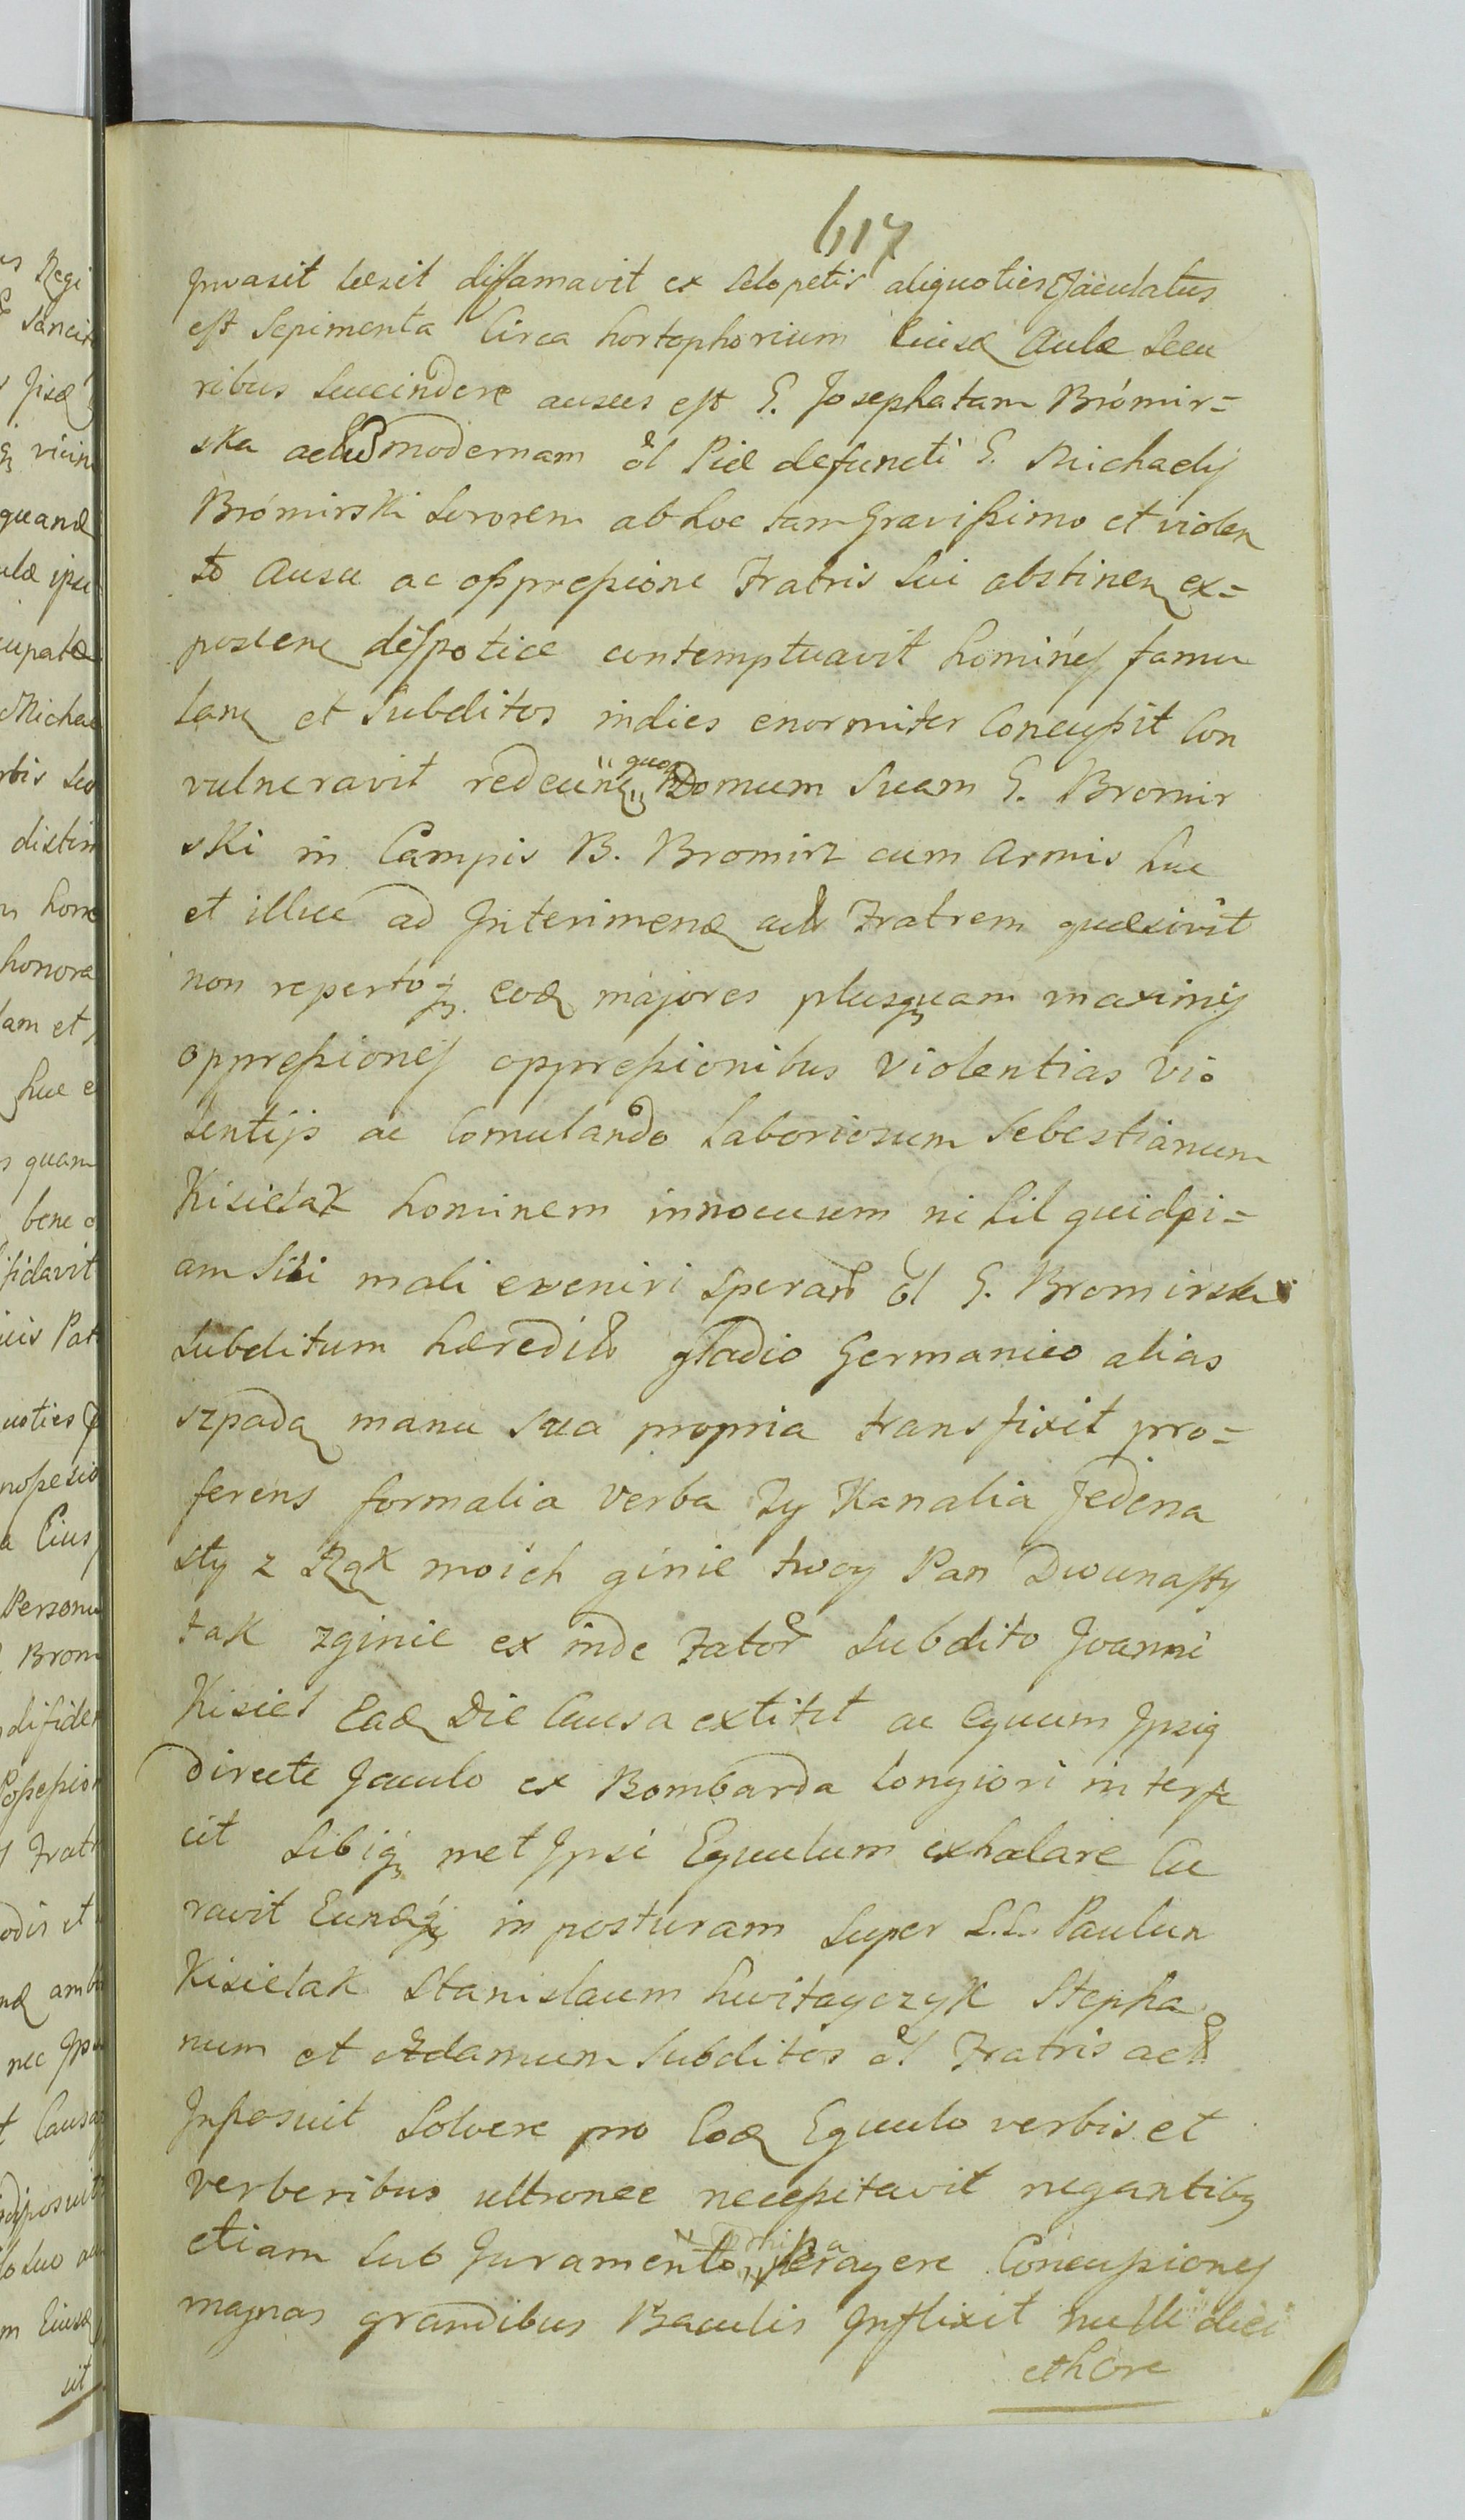 617
Invasit læsit diffamavit ex sclopetis aliquoties Jaculatus
est Sepimenta Circa hortophorium Eiusd Aulæ Secu
ribus Succindere ausus est G. Josephatam Brómir=
ska modernam ol Piæ defuncti G. Michaelij
Brómirski Sororem ab hoc tam Gravissimo et violen
to Ausu ac oppressione Fratris Sui abstinen ex=
posten despotice contemptuavit homines famu
lan et Subditos indies enormiter Concussit Con
vulneravit redeun quoq Domum Suam G. Bromir
ski in Campis B. Bromirz cum Armis huc
et illuc ad Interimend act Fratrem quæsivit
non repertoq eod majores plusquam maximis
oppressiones oppressionibus Violentias Vio
lentijs ac Comulando Laboriosum Sebestianum
Kisielak hominem innocuum nihil quidpi=
am Sibi mali eveniri Speran ol G. Bromirski
Subditum hæredit gladio Germanico alias
szpadą manu sua propria transfixit pro=
ferens formalia verba Ty Kanalia Jedena
sty z Rąk moich ginie twoy Pan Dwunasty
tak zginie ex inde Subdito Joanni
Kisiel Ead Die Causa extitit ac Equum Ipsiq
directe Jaculo ex Bombarda longiori interfe
cit Sibiq met Ipsi Equulum exhalare Cu
ravit Eundq in posturam Super L.L. Paulun
Kisielak Stanislaum Stepha
num et Adamum Subditos ol Fratris act
Inposuit Solvere pro Eod Equulo verbis et
verberibus ultronee necessitavit negantibq
etiam Sub Juramento peragere Concussiones
magnas grandibus Baculis Inflixit